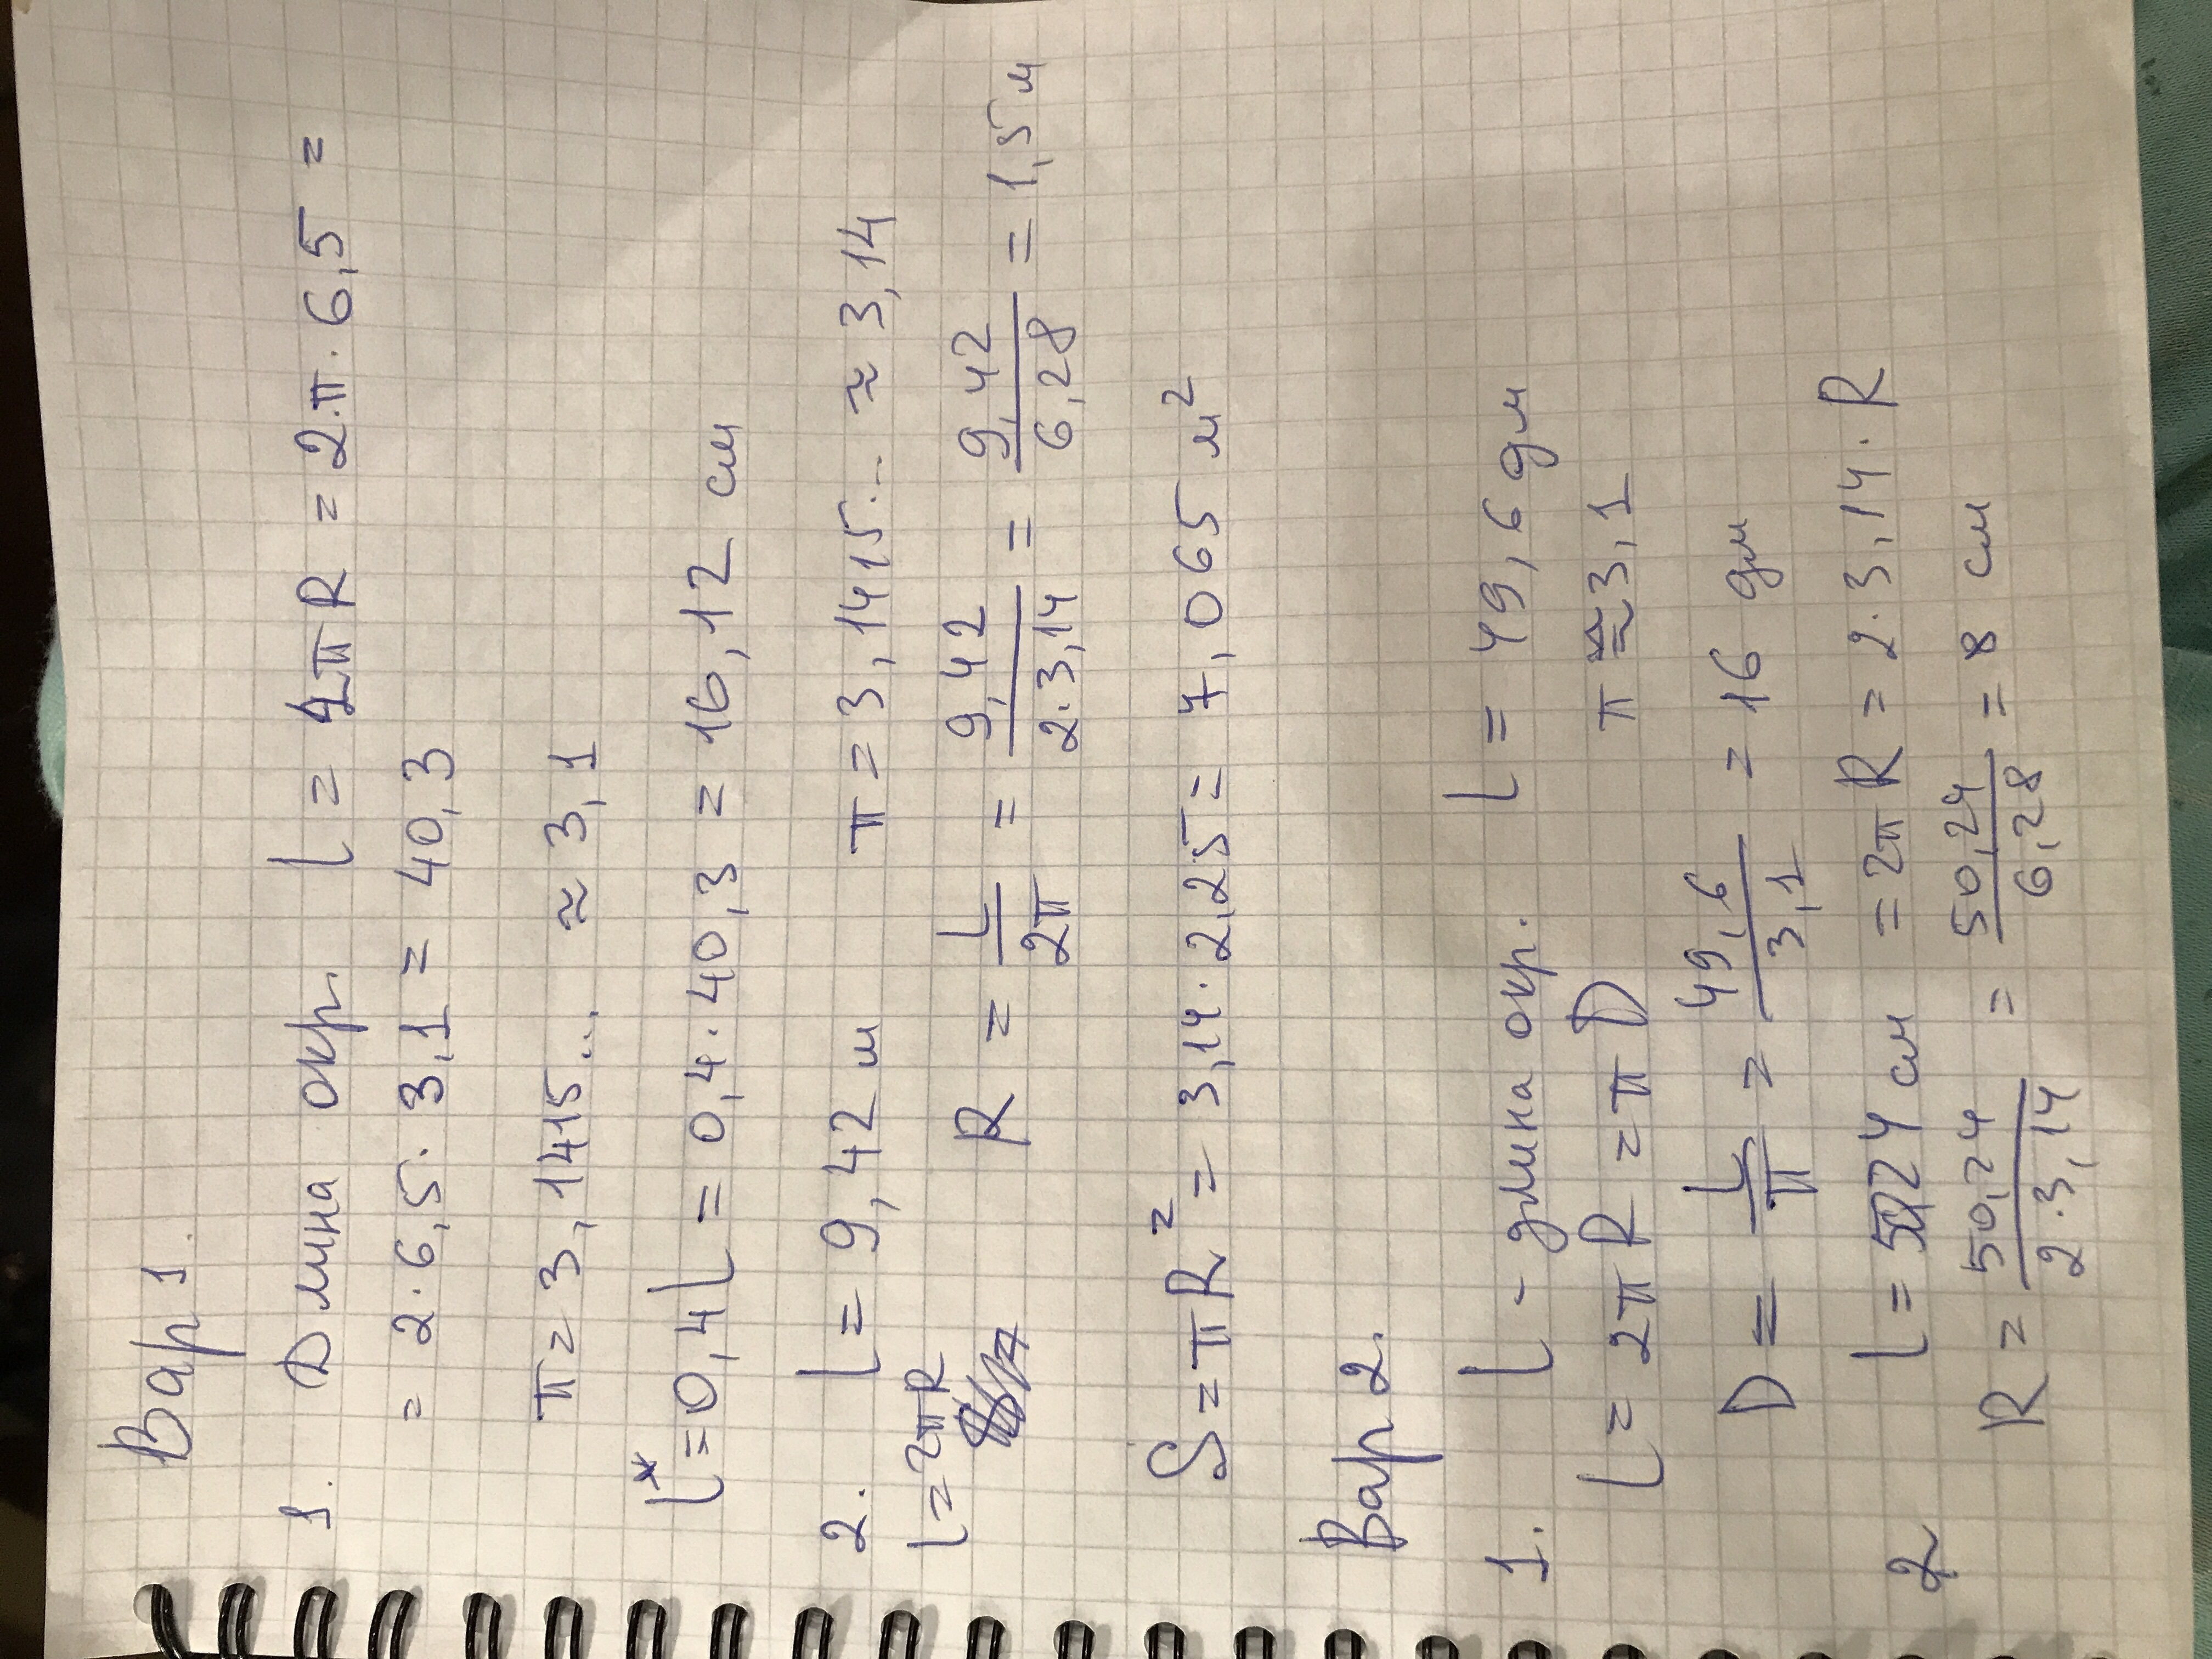 Вар 1.
1. Длина окр. L = 2πR = 2·π·6,5 =
= 2·6,5·3,1 = 40,3
π = 3,1415... ≈ 3,1
L* = 0,4L = 0,4·40,3 = 16,12 см
2. L = 9,42 м π = 3,1415... ≈ 3,14
L = 2πR R = L/2π = 9,42/2·3,14 = 9,42/6,28 = 1,5 м
S = πR² = 3,14·2,25 = 7,065 м²
Вар 2.
1. L - длина окр. L = 49,6 дм
L = 2πR = πD π ≈ 3,1
D = L/π = 49,6/3,1 = 16 дм
2 L = 50,24 см = 2πR = 2·3,14·R
R = 50,24/2·3,14 = 50,24/6,28 = 8 см